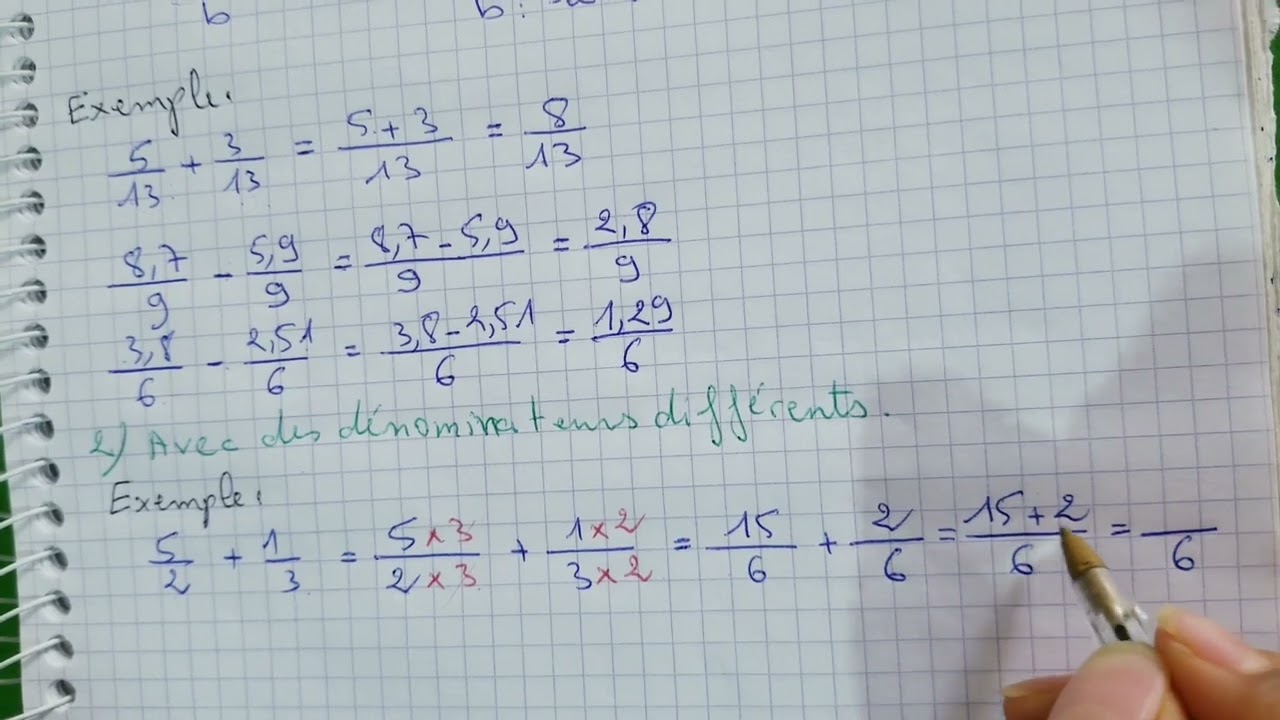 b b
Exemple:
5/13 + 3/13 = 5+3/13 = 8/13
8,7/9 - 5,9/9 = 8,7-5,9/9 = 2,8/9
3,8/6 - 2,51/6 = 3,8-2,51/6 = 1,29/6
2) Avec des dénominateurs différents.
Exemple:
5/2 + 1/3 = 5×3/2×3 + 1×2/3×2 = 15/6 + 2/6 = 15+2/6 = /6